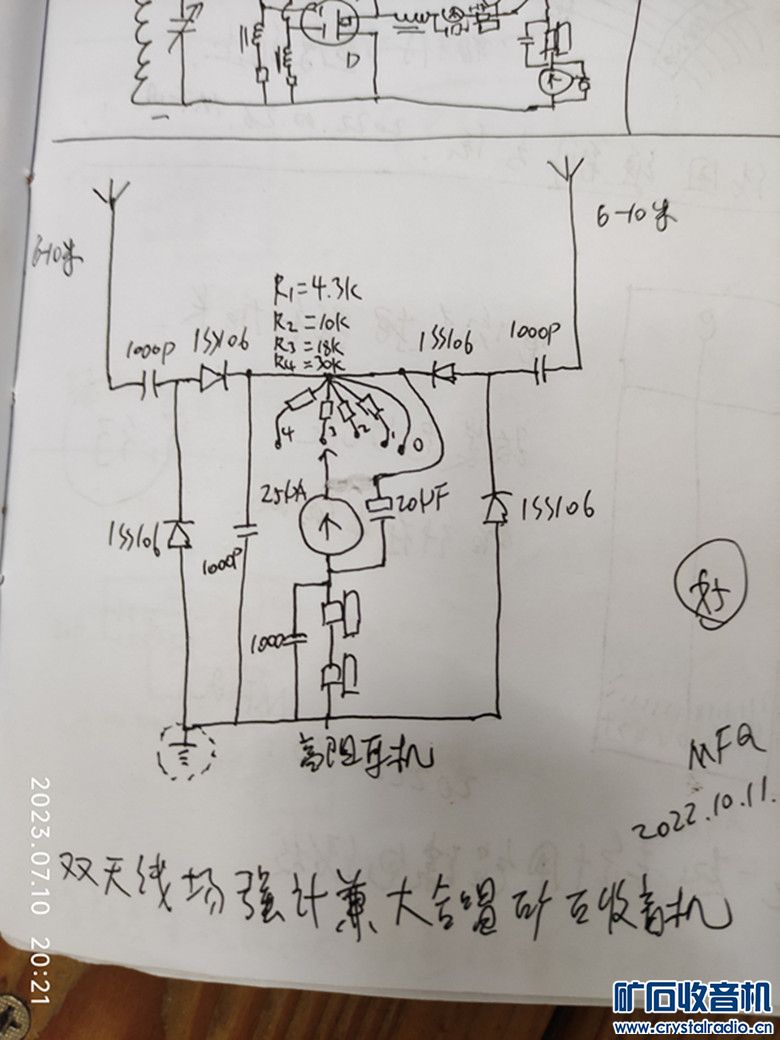 D
6-10米
6-10米
R1=4.3K
R2=10K
R3=18K
R4=30K
1000P
1SS106
1SS106
1000P
4
3
2
1
0
25μA
20μF
1SS106
1000P
1SS106
1000
好
高阻耳机
MFQ
2022.10.11.
双天线场强计兼大合唱矿石收音机
2023.07.10 20:21
矿石收音机
www.crystalradio.cn